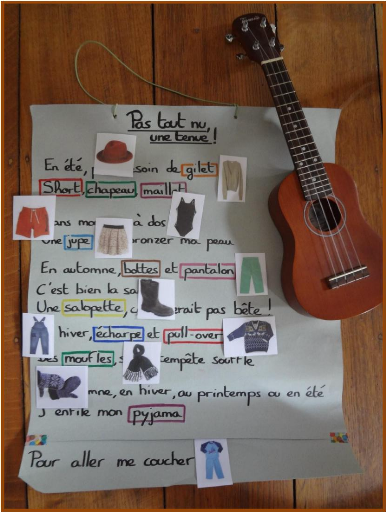 Pas tout nu,
une tenue !
En été, soin de gilet
Short, chapeau maillot
ans mo à dos
une jupe bronzer ma peau
En automne, bottes et pantalon
C'est bien la sa
Une salopette, c erait pas bête !
hiver, écharpe et pull-over
Des moufles, s empête souffle
mne, en hiver, au printemps ou en été
J'enfile mon pyjama
Pour aller me coucher